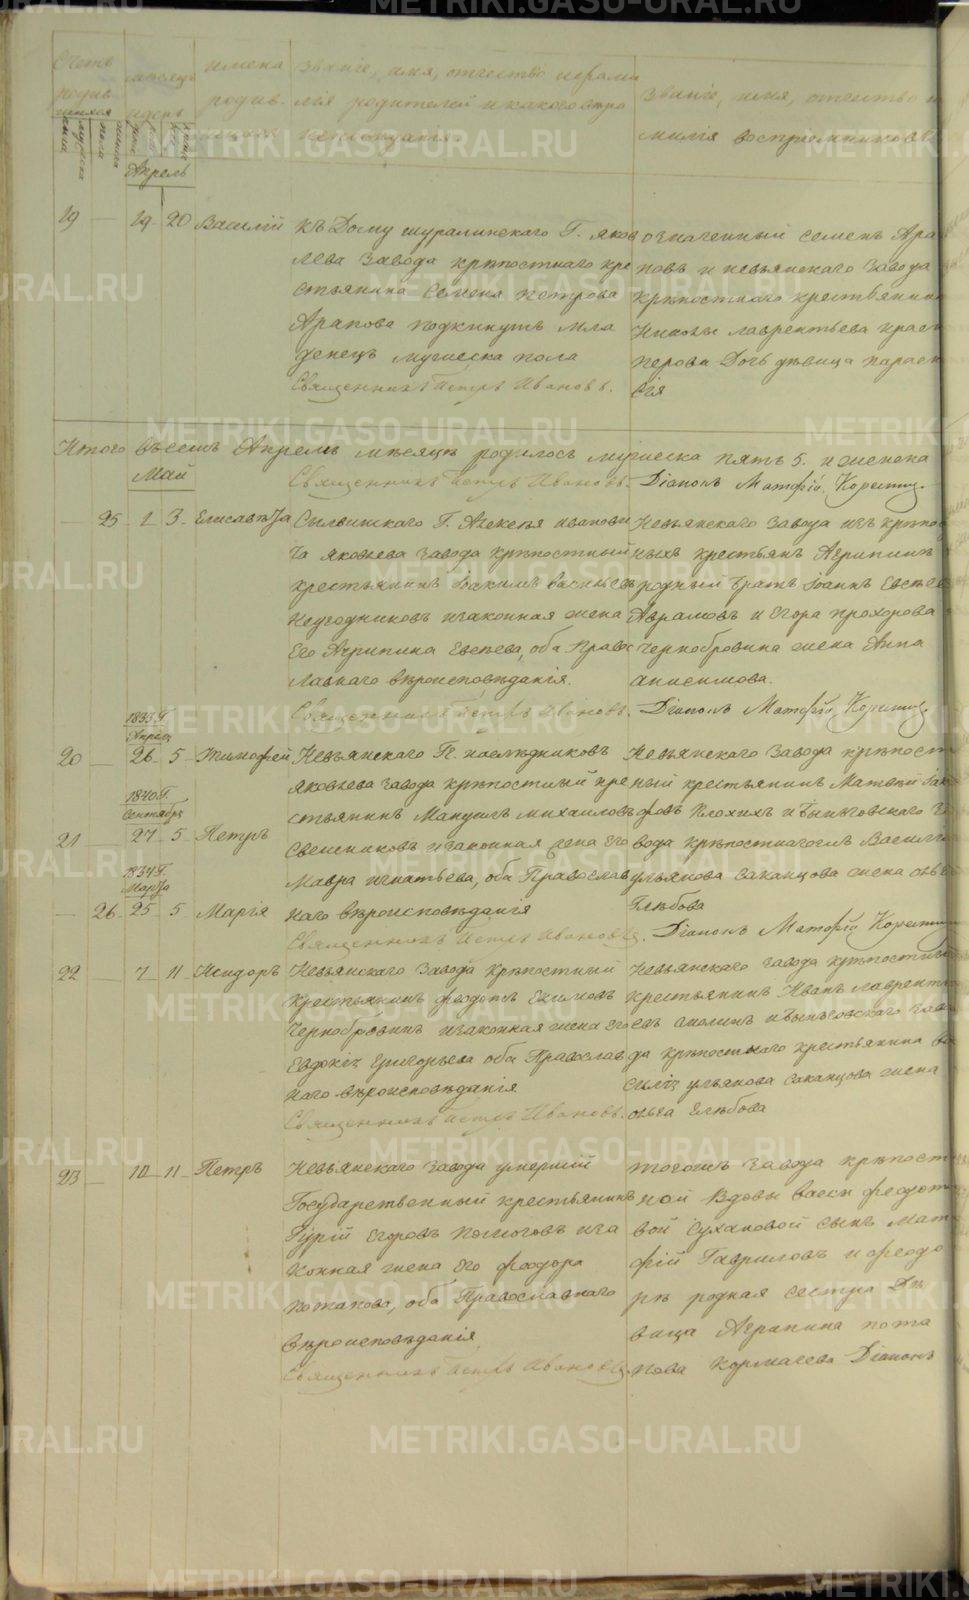 Счетъ родив- шихся
мужеска пола
женска
Месяцъ и день
Апрель
имена родив- шихся
Звание, имя, отчество и фами
лія родителей и какого веро
исповеданія
Звание, имя, отчество и
милія воспріемниковъ
19 — 19 20 Василій
Къ Дому шуралинскаго Г. Яков
лева завода крѣпостнаго кре
стьянина Семена Петрова
Арапова подкинутъ мла
денецъ мужеска пола
Священникъ Петръ Ивановъ.
означенный Семенъ Ара
повъ и невьянскаго завода
крѣпостнаго крестьянина
Никона Лаврентьева
перова Дочь дѣвица Параск
евія
Итого въ семъ Апрелѣ месяцѣ родилось мужеска пять 5. и женска
Священникъ Петръ Ивановъ. Діаконъ Матфій
Май
— 25 1 3 Елисавета
Сылвинскаго Г. Алексея Иванови
ча Яковлева завода крѣпостный
крестьянинъ Іоакимъ Васильевъ
и законная жена
Его Агрипина Евсеева, оба Правос
лавнаго вѣроисповѣданія.
Священникъ Петръ Ивановъ.
Невьянскаго Завода изъ крѣпос
ныхъ крестьянъ Агрипины
родный братъ Іоаннъ Евсеев
Аврамовъ и Егора Прохорова
Чернобровина жена Анна
Анисимова.
Діаконъ Матфій
1833 Г. Апрель
20 — 26 5 Тимофей
1840 Г. Сентября
21 — 27 5 Петръ
1834 Г. Марта
— 26 25 5 Марія
Невьянскаго Гг. наслѣдниковъ
Яковлева завода крѣпостный кре
стьянинъ Мануилъ Михаиловъ
и законная жена его
Мавра Игнатьева, оба Православ
наго вѣроисповѣданія
Священникъ Петръ Ивановъ.
Невьянскаго Завода крѣпост
ный крестьянинъ Матвей Іак
овъ Плохихъ и Быньговскаго За
вода крѣпостнаго Василья
Ульянова Саканцова жена
Глѣбова
Діаконъ Матфій
22 — 7 11 Исидоръ
Невьянскаго Завода Крѣпостный
крестьянинъ Феодотъ Екимовъ
Чернобровинъ и законная жена его
Евдокія Григорьева оба Православ
наго вѣроисповѣданія
Священникъ Петръ Ивановъ.
Невьянскаго завода крѣпостный
крестьянинъ Иванъ Лаврентье
въ и Быньговскаго заво
да крѣпостнаго крестьянина Ва
силія Ульянова Саканцова жена
Глѣбова
23 — 10 11 Петръ
Невьянскаго завода умершій
Государственный крестьянинъ
Гурій Егоровъ и за
конная жена Его Феодора
Потапова, оба Православнаго
вѣроисповѣданія
Священникъ Петръ Ивановъ.
тогожъ Завода крѣпост
ной Вдовы Феодото
вой Сухановой сынъ Мат
фій Гавриловъ и Феодо
ры родная сестра Дѣ
вица Агрипина Пота
пова Кормачева Діаконъ
METRIKI.GASO-URAL.RU